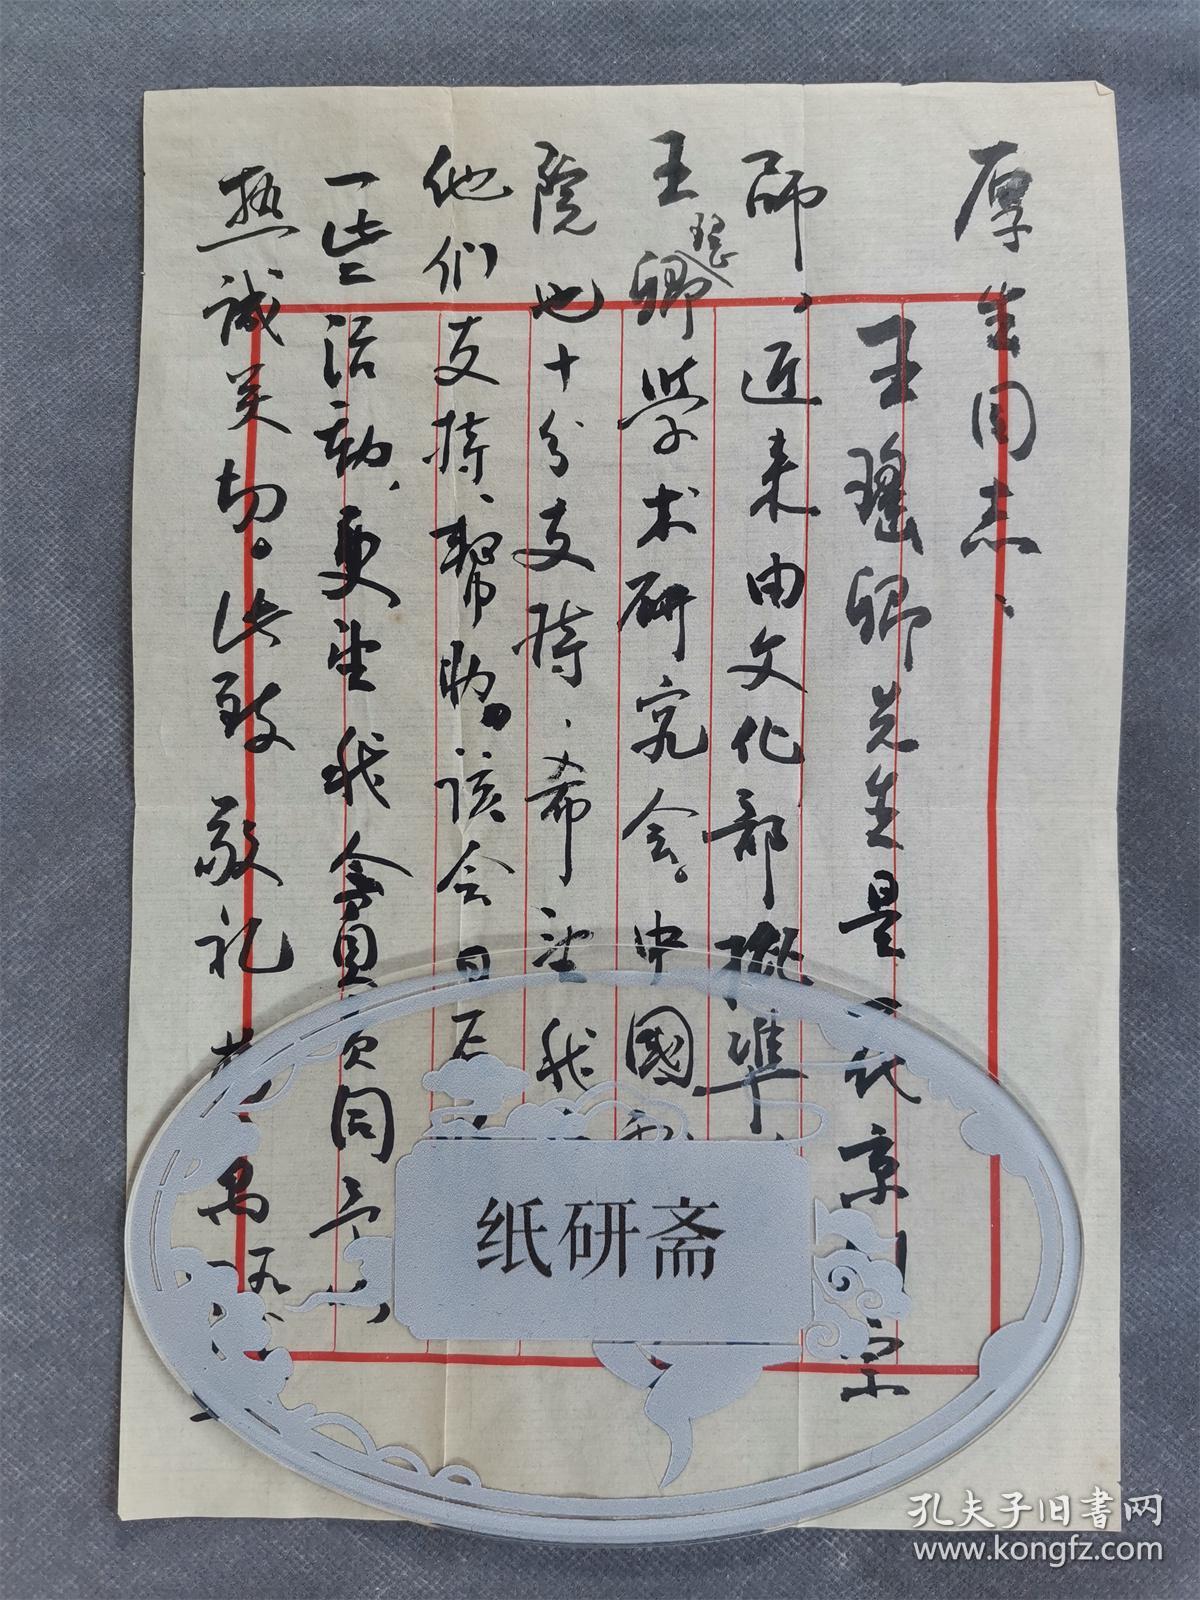 厚生同志、
王瑶卿先生是一代京剧宗
师，近来由文化部批準，
王瑶卿学术研究会。中國
院也十分支持，希望我
他们支持、帮助。该会日后
一些活动，更望我会員
同
热诚关切。此致 敬礼
纸研斋
孔夫子旧書网
www.kongfz.com